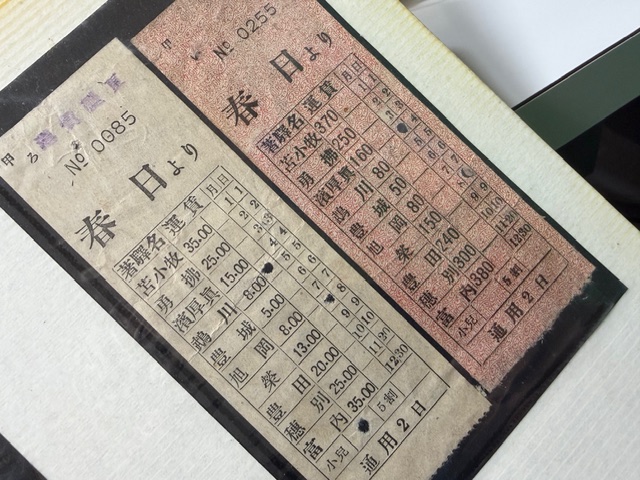 甲 ろ
No 0085
春日より
著驛名 運賃 月 日
苫小牧 35.00 1 1
勇拂 25.00 2 2
濱厚眞 15.00 3 3
鵡川 8.00 4
豊城 5.00 5 5
旭岡 8.00 6 6
栄 13.00 7 7
豊田 20.00 8
穂別 25.00 9 9
富内 35.00 10 10
11 20
12 30
小兒 5割
通用2日
甲 い
No 0255
春日より
著驛名 運賃 月 日
苫小牧 370 1 1
勇拂 250 2 2
濱厚眞 160 3
鵡川 80 4
豊城 50 5 5
旭岡 80 6 6
栄 150 7 7
豊田 240 8
穂別 300 9 9
富内 380 10 10
11 20
12 30
小兒 5割
通用2日